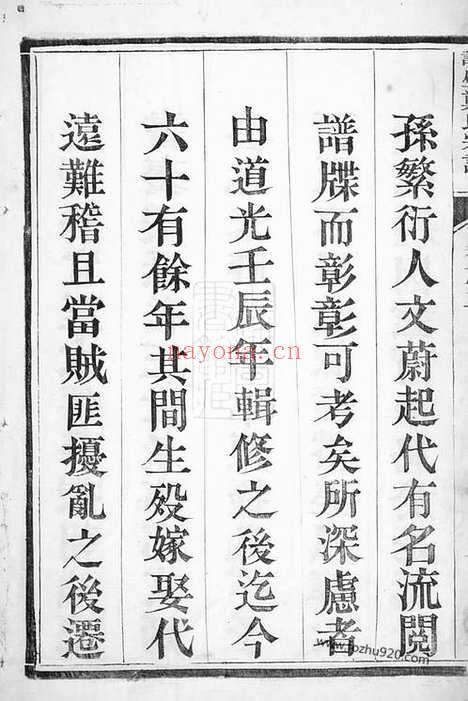 孫繁衍人文蔚起代有名流閱
譜牒而彰彰可考矣所深慮者
由道光壬辰年輯修之後迄今
六十有餘年其間生殁嫁娶代
遠難稽且當賊匪擾亂之後遷
nayona.cn
www.fozhu920.com